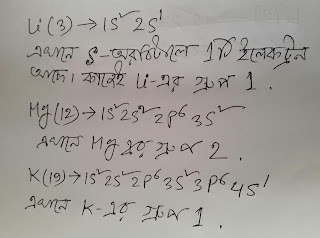 Li(3)→1S²2S¹
এখানে S-অরবিটালে 1টি ইলেকট্রন
আছে। কাজেই Li-এর গ্রুপ 1.
Mg(12)→1S²2S²2P⁶3S²
এখানে Mg এর গ্রুপ 2.
K(19)→1S²2S²2P⁶3S²3P⁶4S¹
এখানে K-এর গ্রুপ 1.